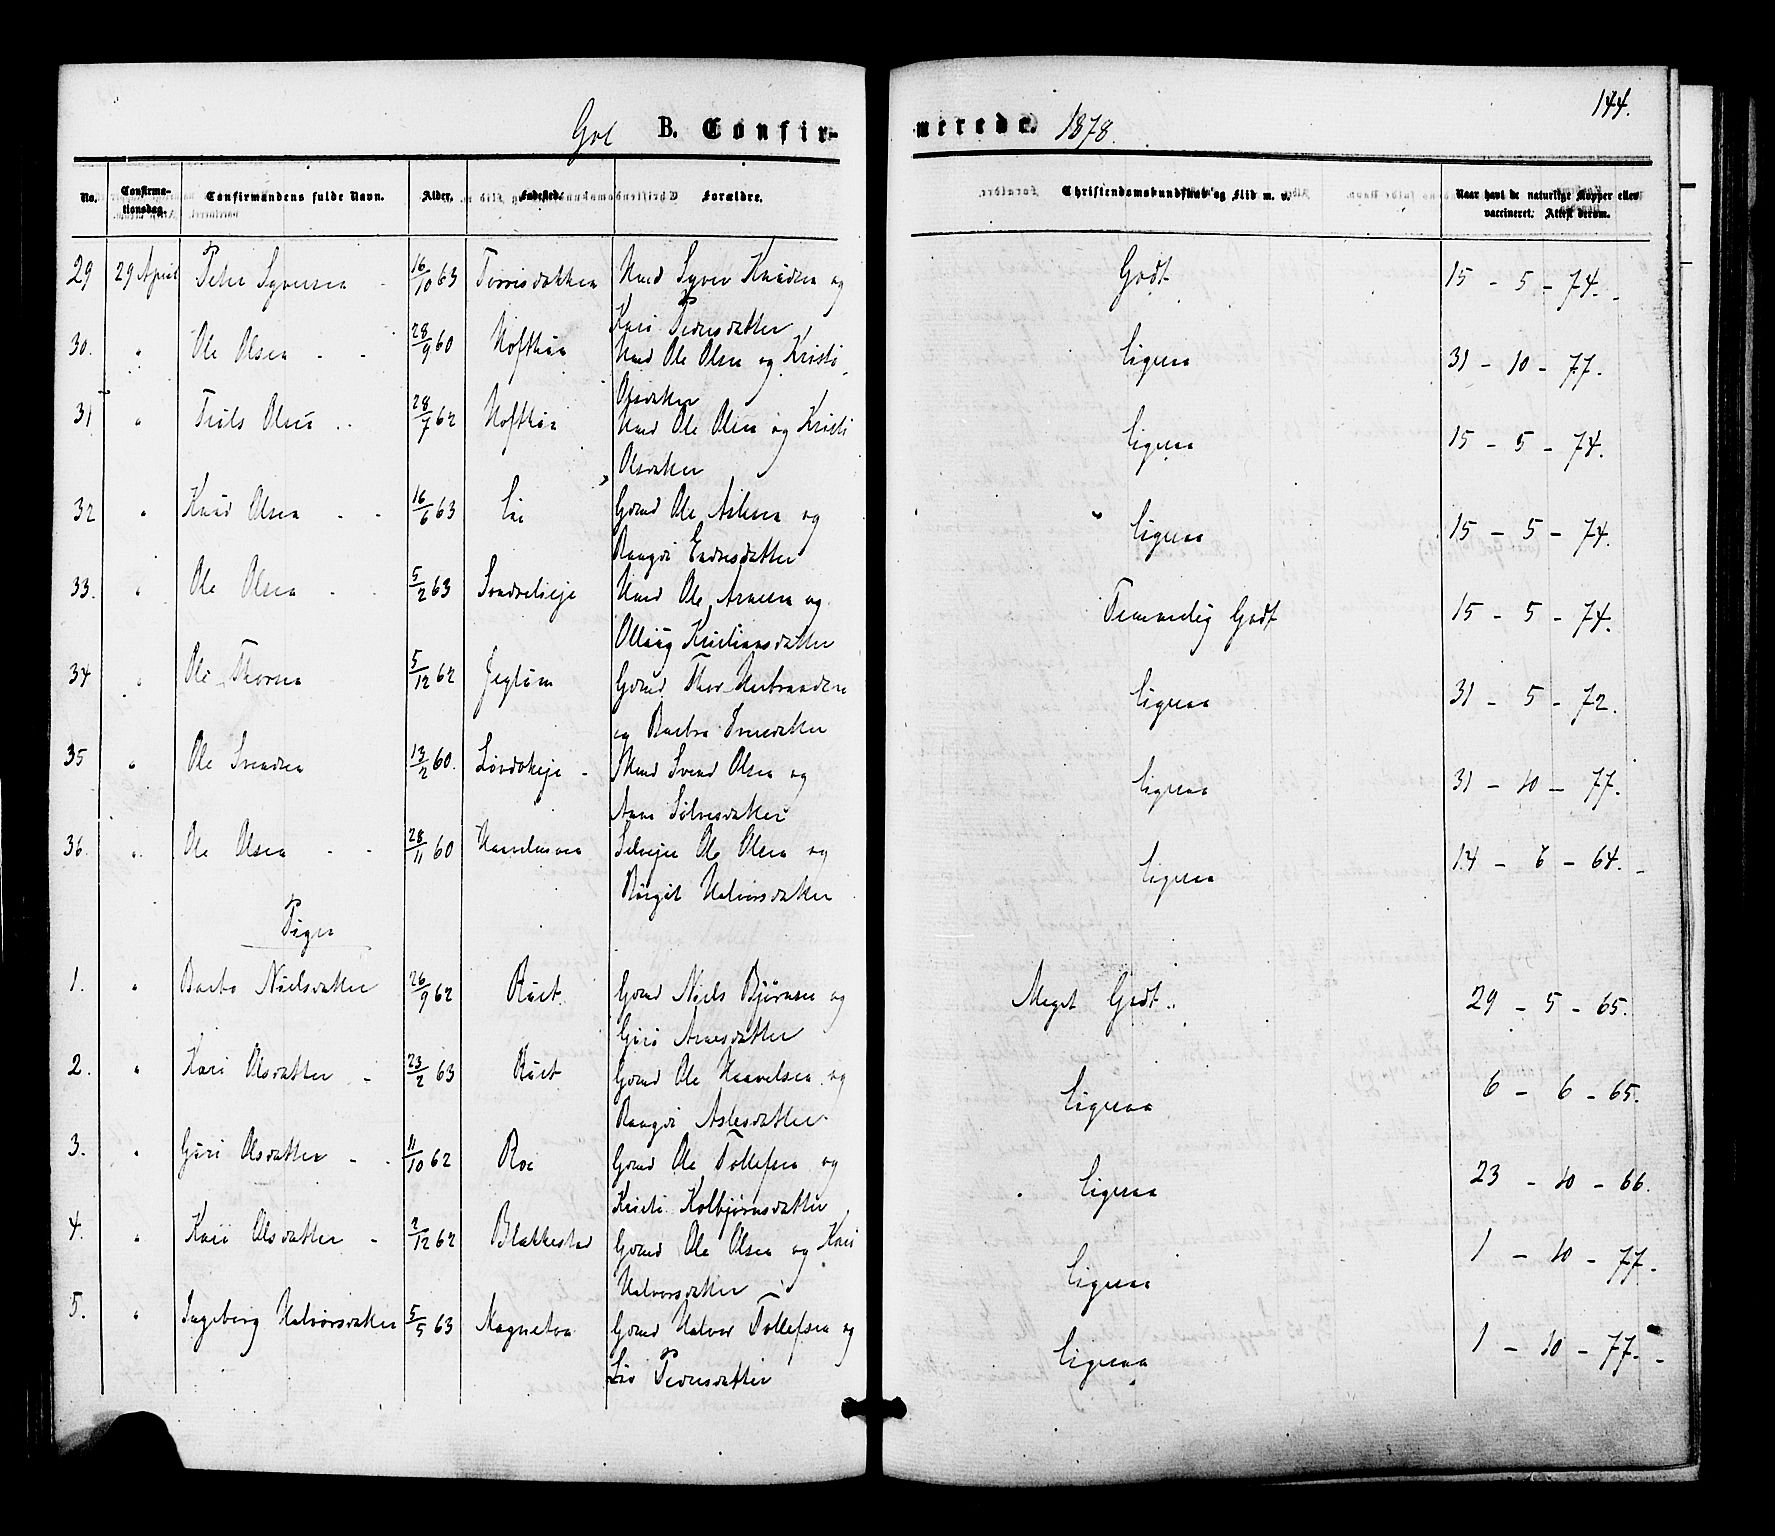 144.
Gol B. Confirmerede. 1878.
No. Confirmationsdag. Confirmandens fulde Navn. Alder. Fødested. Forældre. Christendomskundskab og Flid m. v. Naar havt de naturlige Kopper eller vaccineret. Attest derom.
29 29 April Peder Syversen 16/10 63 Torrisbakken Hmd Syver Knudsen og Godt 15 - 5 - 74.
Kari Pedersdatter
30. " Ole Olsen 28/9 60 Hoftun Hmd Ole Olsen og Kristi Ligesaa 31 - 10 - 77.
Olsdatter
31 " Trols Olsen 28/7 62 Hoftun Hmd Ole Olsen og Kristi Ligesaa 15 - 5 - 74.
Olsdatter
32 " Knud Olsen 16/6 63 Lie Gmd Ole Aslesen og Ligesaa 15 - 5 - 74.
Raagdi Endresdatter
33. " Ole Olsen 5/2 63 Hmd Ole Arnesen og Temmelig Godt 15 - 5 - 74.
Ollaug Kristiansdatter
34 " Ole Thorsen 5/12 62 Gmd Thor Herbrandsen Ligesaa 31 - 5 - 72.
og Barbro Iversdatter
35 " Ole Svendsen 13/2 60. Hmd Svend Olsen og Ligesaa 31 - 10 - 77.
Anne Sølvesdatter
36. " Ole Olsen 28/11 60 Selveier Ole Olsen og Ligesaa 14 - 6 - 64.
Birgit Halvorsdatter
Piger
1. " Barbo Nielsdatter 26/9 62 Rust Gmd Niels Bjørnsen og Meget Godt 29 - 5 - 65.
Guri Arnesdatter
2. " Kari Olsdatter 23/2 63 Rust Gmd Ole Haavelsen og Ligesaa 6 - 6 - 65.
Raagdi Aslesdatter
3. " Guri Olsdatter 11/10 62 Roe Gmd Ole Tollefsen og Ligesaa 23 - 10 - 66.
Kristi Kolbjørnsdatter
4. " Kari Olsdatter 2/12 62 Blakkestad Gmd Ole Olsen og Kari Ligesaa 1 - 10 - 77.
Halvorsdatter
5. " Ingeborg Halvorsdatter 5/5 63 Magnetun Gmd Halvor Tollefsen og Ligesaa 1 - 10 - 77.
Liv Pedersdatter